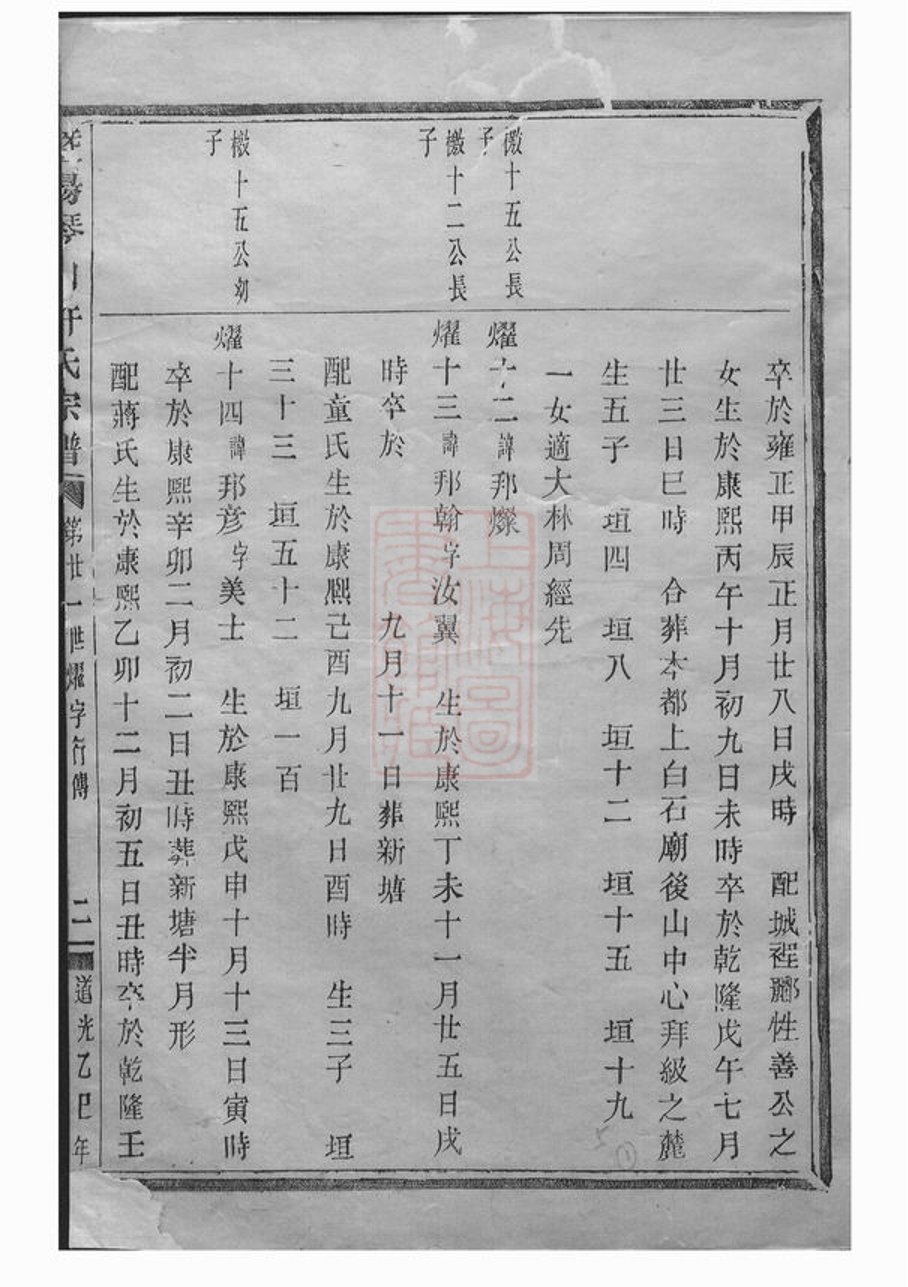 卒於雍正甲辰正月廿八日戌時　配城裡酈性善公之
女生於康熙丙午十月初九日未時卒於乾隆戊午七月
廿三日巳時　合葬本都上白石廟後山中心拜級之麓
生五子　垣四　垣八　垣十二　垣十五　垣十九
一女適大林周經先
檄十五公長子
燿十二諱邦燦
檄十二公長子
燿十三諱邦翰字汝翼　生於康熙丁未十一月廿五日戌
時卒於　　　　九月十一日葬新塘
配童氏生於康熙己酉九月廿九日酉時　生三子　垣
三十三　垣五十二　垣一百
檄十五公幼子
燿十四諱邦彦字美士　生於康熙戊申十月十三日寅時
卒於康熙辛卯二月初二日丑時葬新塘半月形
配蔣氏生於康熙乙卯十二月初五日丑時卒於乾隆壬
暨陽琴川許氏宗譜　第廿一世燿字行傳　二　道光乙巳年
上海圖書館藏